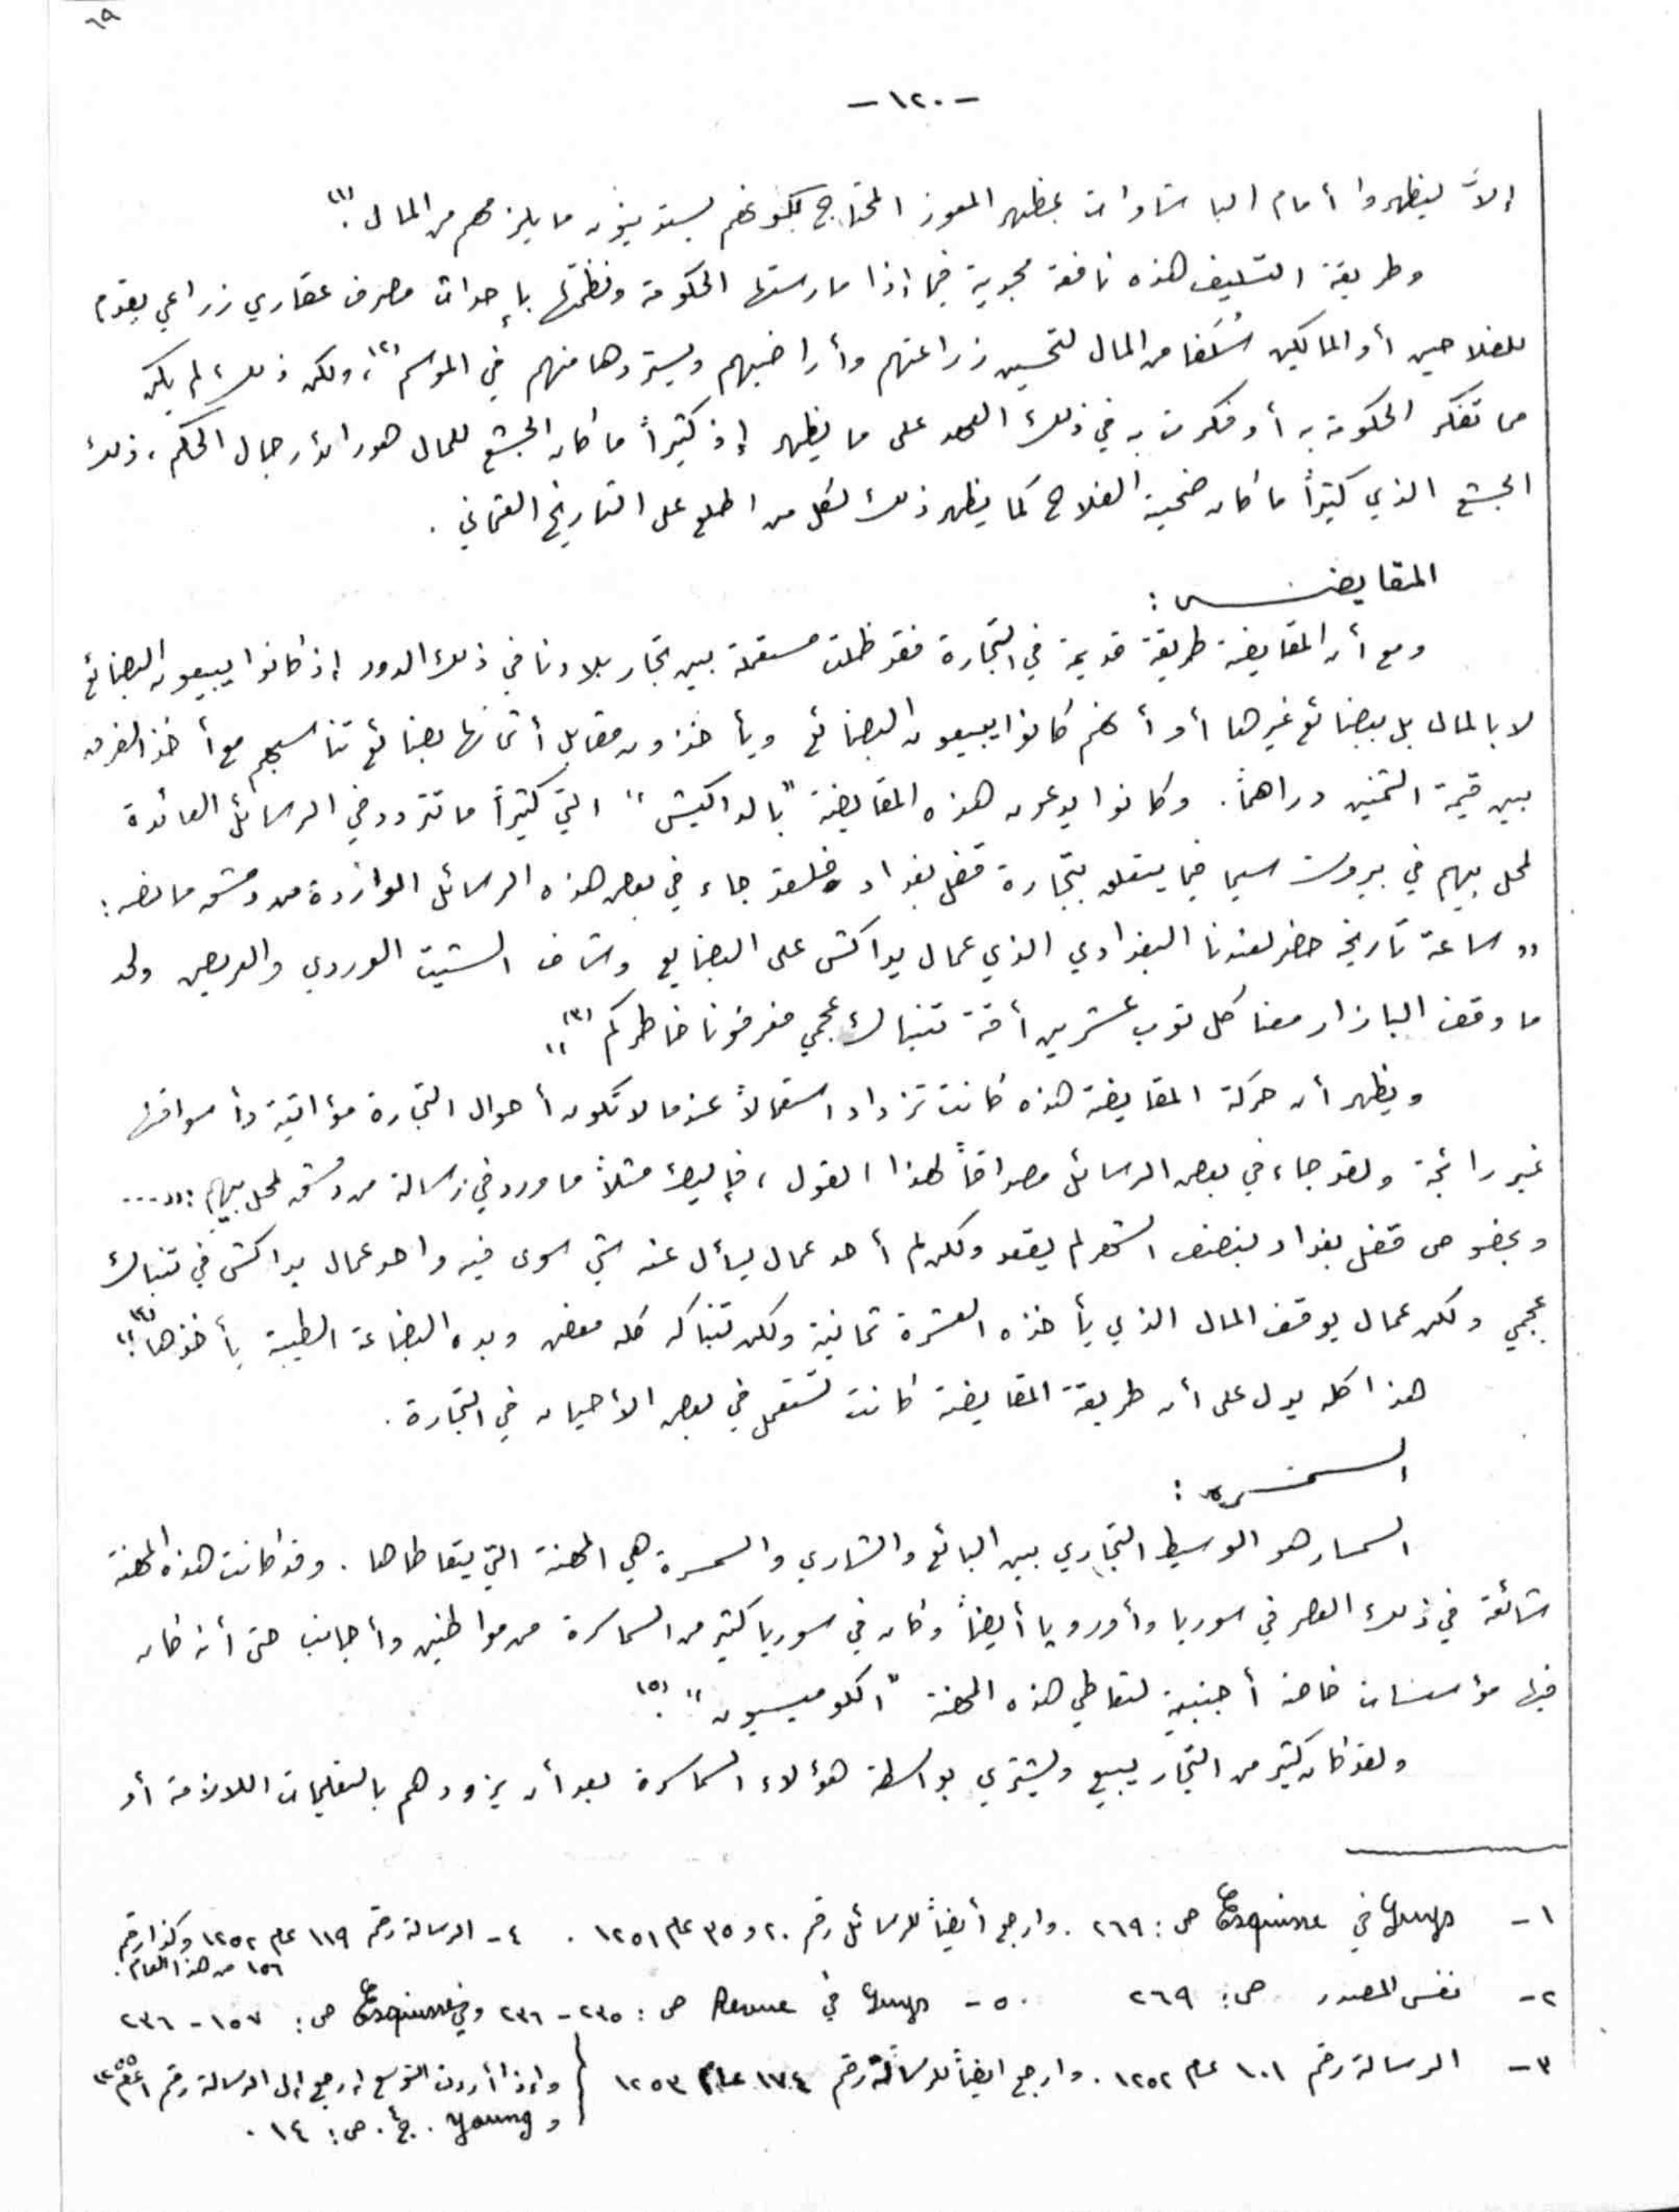 ٦٩
-١٢٠-
إلاَّ ليظهروا أمام الباشاوات بمظهر المعوز المحتاج لكونهم يستدينون ما يلزمهم من المال (١).
وطريقة التسليف هذه نافعة مجدية فيما إذا مارستها الحكومة ونظمتها بإحداث مصرف عقاري زراعي يقدم
للفلاحين أو المالكين سُلَفا من المال لتحسين زراعتهم وأراضيهم ويستردها منهم في الموسم (٢)، ولكن ذلك لم يكن
مما تفكر الحكومة به أو فكرت به في ذلك العهد على ما يظهر إذ كثيراً ما كان الجشع للمال هو رائد رجال الحكم، ذلك
الجشع الذي كثيراً ما كان ضحيته الفلاح كما يظهر ذلك لكل من اطلع على التاريخ العثماني .
المقايضة :
ومع أن المقايضة طريقة قديمة في التجارة فقد ظلت مستعملة بين تجار بلادنا في ذلك الدور إذ كانوا يبيعون البضائع
لا بالمال بل ببضائع غيرها أو أنهم كانوا يبيعون البضائع ويأخذون مقابل أثمانها بضائع تناسبهم مع أخذ الفرق
بين قيمة الثمنين دراهماً . وكانوا يدعون هذه المقايضة "بالداكيش" التي كثيراً ما تتردد في الرسائل العائدة
لمحل بيهم في بيروت سيما فيما يتعلق بتجارة قفل بغداد فلقد جاء في بعض هذه الرسائل الواردة من دمشق ما نصه :
"ساعة تاريخه حضر لعندنا البغدادي الذي عمال يداكش على البضايع وشاف الشيت الوردي والعريض ولحد
ما وقف البازار معنا كل توب عشرين أقة تنباك عجمي فعرفونا خاطركم (٣)"
ويظهر أن حركة المقايضة هذه كانت تزداد استعمالاً عندما لا تكون أحوال التجارة مؤاتية وأسواقها
غير رائجة ولقد جاء في بعض الرسائل مصداقاً لهذا القول ، فإليك مثلاً ما ورد في رسالة من دمشق لمحل بيهم : "....
وبخصوص قفل بغداد بنصف الشهر لم يقعد ولكن لم أحد عمال يسأل عنه شي سوى فيه واحد عمال يداكش في تنباك
عجمي ولكن عمال يوقف المال الذي يأخذه العشرة ثمانية ولكن تنباكه كله معفن وبده البضاعة الطيبة يأخذها (٤)".
هذا كله يدل على أن طريقة المقايضة كانت تستعمل في بعض الأحيان في التجارة .
السمسرة :
السمسار هو الوسيط التجاري بين البائع والشاري والسمسرة هي المهنة التي يتعاطاها . وقد كانت هذه المهنة
شائعة في ذلك العصر في سوريا وأوروبا أيضاً وكان في سوريا كثير من السماسرة من مواطنين وأجانب حتى أنه كان
فيها مؤسسات خاصة أجنبية لتعاطي هذه المهنة "الكوميسيون" (٥).
ولقد كان كثير من التجار يبيع ويشتري بواسطة هؤلاء السماسرة بعد أن يزودهم بالتعليمات اللازمة أو
١- Guys في Esquisse ص : ٢٦٩ . وارجع أيضاً للرسائل رقم ٢٠ و ٣٥ عام ١٢٥١ . ٤- الرسالة رقم ١١٩ عام ١٢٥٢ وكذا رقم
١٥٦ من هذا العام .
٢- نفس المصدر ص : ٢٦٩ . ٥- Guys في Revue ص : ٢٣٥ - ٢٣٦ وفي Esquisse ص : ١٥٧ - ٢٣٦
٣- الرسالة رقم ١٠١ عام ١٢٥٢ . وارجع ايضاً للرسالة رقم ١٧٤ عام ١٢٥٣ وإذا أردت التوسع ارجع إلى الرسالة رقم ١ عام ١٢٥٥
و Young . ج٤ . ص : ١٤ .